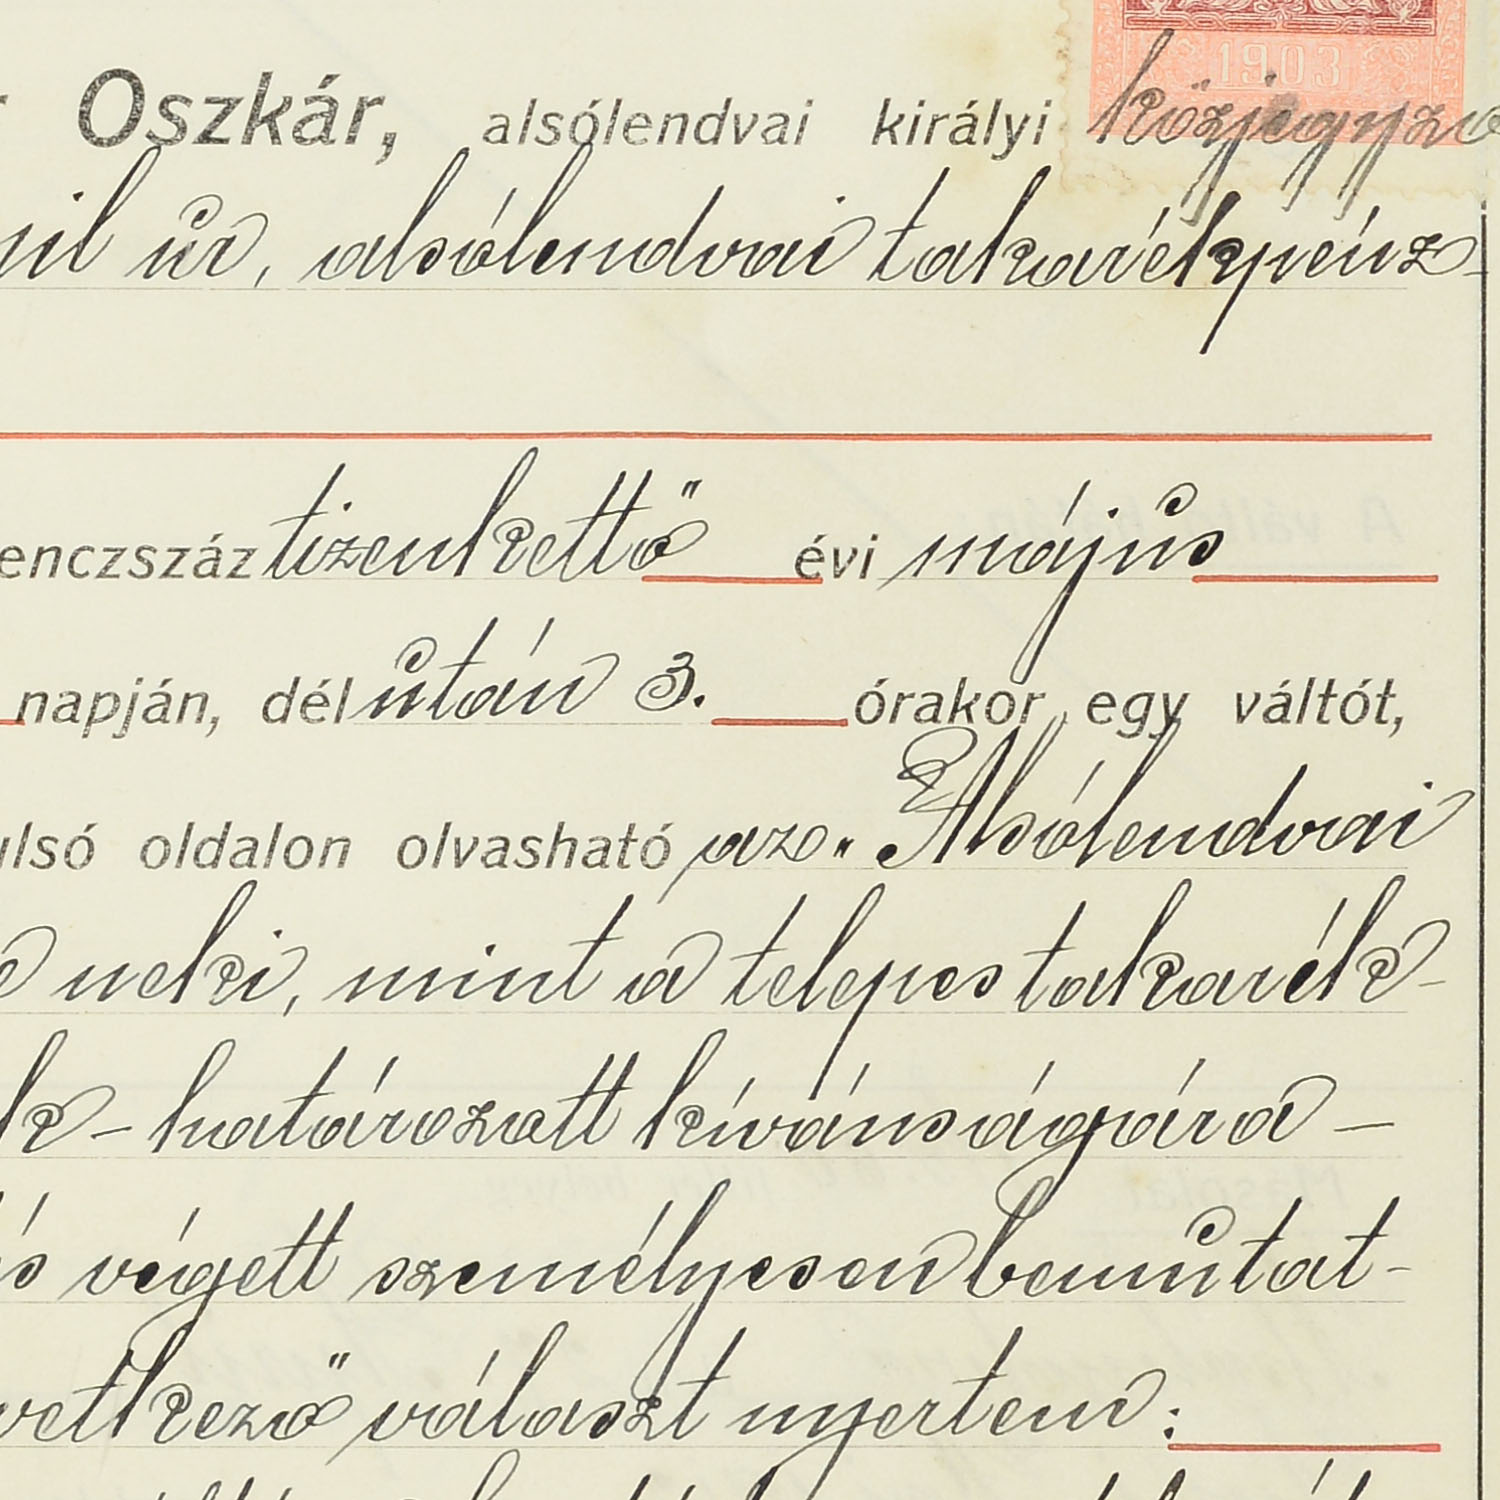 1903
Oszkár, alsólendvai királyi közjegyző
úr, alsólendvai takarékpénz-
enczszáz tizenkettő évi május
napján, délután 3. órakor egy váltót,
ulsó oldalon olvasható az "Alsólendvai
neki, mint a telepes takarék-
k - határozott kívánságára -
és végett személyesen bemutat-
vetkező választ nyertem: